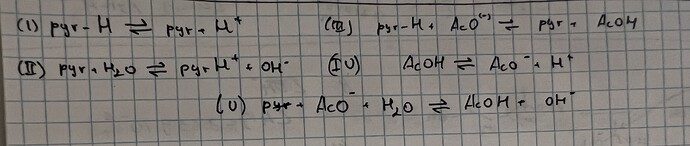 (I) pyr-H ⇌ pyr + H⁺ (III) pyr-H + AcO⁽⁻⁾ ⇌ pyr + AcOH
(II) pyr + H₂O ⇌ pyr H⁺ + OH⁻ (IV) AcOH ⇌ AcO⁻ + H⁺
(V) pyr + AcO⁻ + H₂O ⇌ AcOH + OH⁻